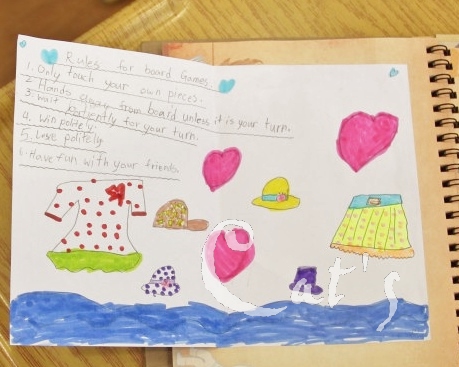 Rules for board Games
1. Only touch your own pieces.
2. Hands away from board unless it is your turn.
3. Wait patiently for your turn.
4. Win politely.
5. Lose politely
6. Have fun with your friends.
Cat's